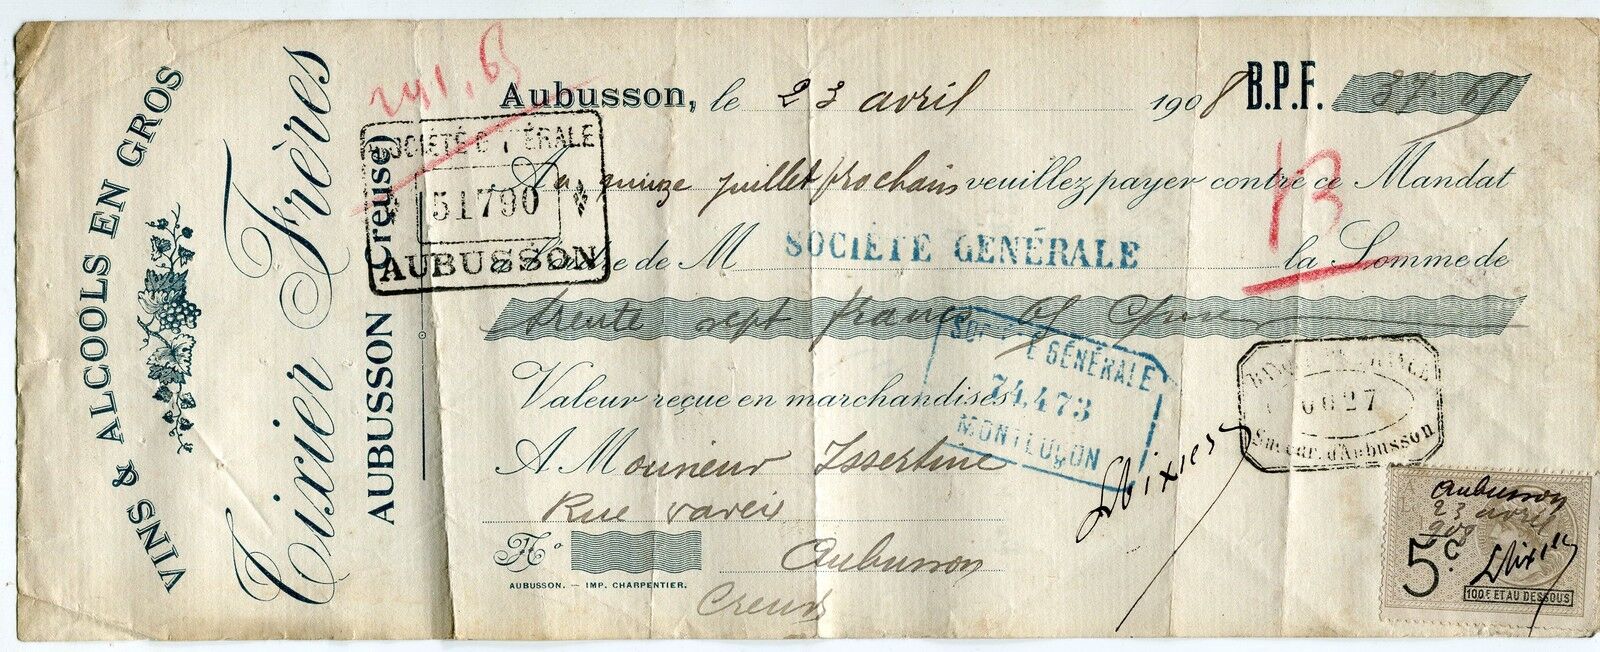 VINS & ALCOOLS EN GROS
Tixier Frères
AUBUSSON (Creuse)
241.65
Aubusson, le 23 avril 1908 B.P.F. 37.65
SOCIÉTÉ GÉNÉRALE
51790
AUBUSSON
Au quinze juillet prochain veuillez payer contre ce Mandat
13
à l'ordre de M SOCIÉTÉ GÉNÉRALE la Somme de
trente sept francs 65
SOCIÉTÉ GÉNÉRALE
74,473
MONTLUÇON
BANQUE DE FRANCE
0027
Succur. d'Aubusson
Valeur reçue en marchandises
A Monsieur
Rue
Aubusson
Creuse
No
AUBUSSON. — IMP. CHARPENTIER.
LTixier
Aubusson
23 avril
908
5c
LTixier
100F ET AU DESSOUS